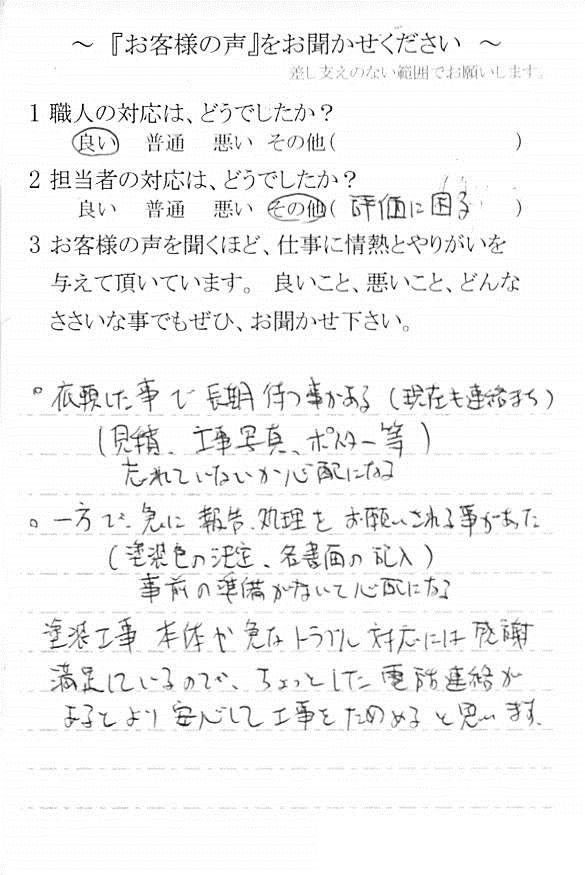 ～ 『お客様の声』をお聞かせください ～
差し支えのない範囲でお願いします。
1 職人の対応は、どうでしたか？
良い 普通 悪い その他( )
2 担当者の対応は、どうでしたか？
良い 普通 悪い その他( 評価に困る )
3 お客様の声を聞くほど、仕事に情熱とやりがいを
与えて頂いています。 良いこと、悪いこと、どんな
ささいな事でもぜひ、お聞かせ下さい。
。依頼した事で長期待つ事がある (現在も連絡まち)
(見積、工事写真、ポスター等)
忘れていないか心配になる
。一方で、急に報告、処理をお願いされる事があった
(塗装色の決定、各書面の記入)
事前の準備がないて心配になる
塗装工事本体や急なトラブル対応には感謝
満足しているので、ちょっとした電話連絡が
あるとより安心して工事をためめると思います。